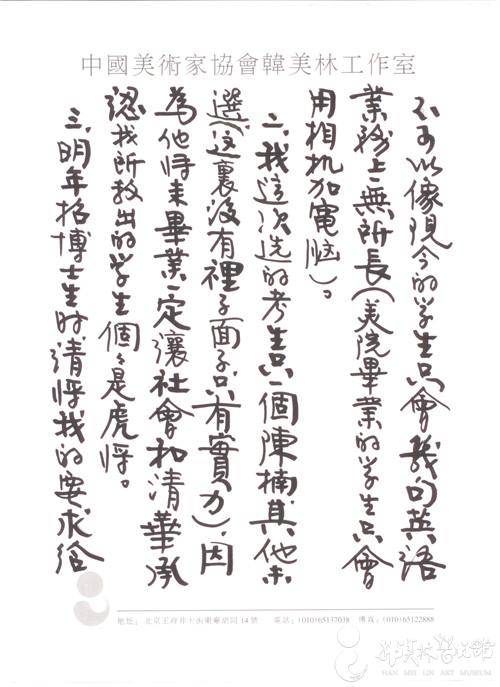 中國美術家協會韓美林工作室
不可以像現今的学生只會幾句英语
業務上無所長（美院畢業的学生只會
用相机加電腦）。
二、我這次选的考生只一個陳楠，其他未
選（这裏沒有裡子面子只有實力），因
為他将来畢業一定讓社會和清華承
認我所教出的学生個々是虎将。
三、明年招博士生时请将我的要求给
地址：北京王府井大街東廠胡同14號 電話：(010)65137038 傳真：(010)65122888
韩美林艺术馆
HAN MEI LIN ART MUSEUM